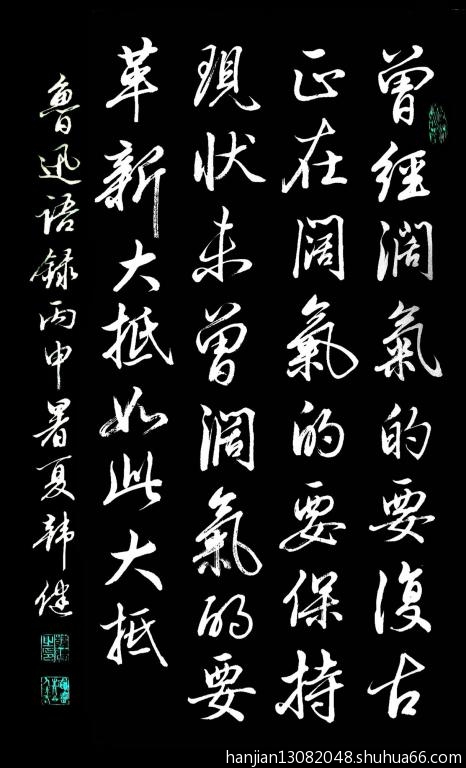 曾經濶氣的要復古
正在闊氣的要保持
現狀未曾濶氣的要
革新大抵如此大抵
魯迅语録丙申暑夏韩健
hanjian13082048.shuhua66.com